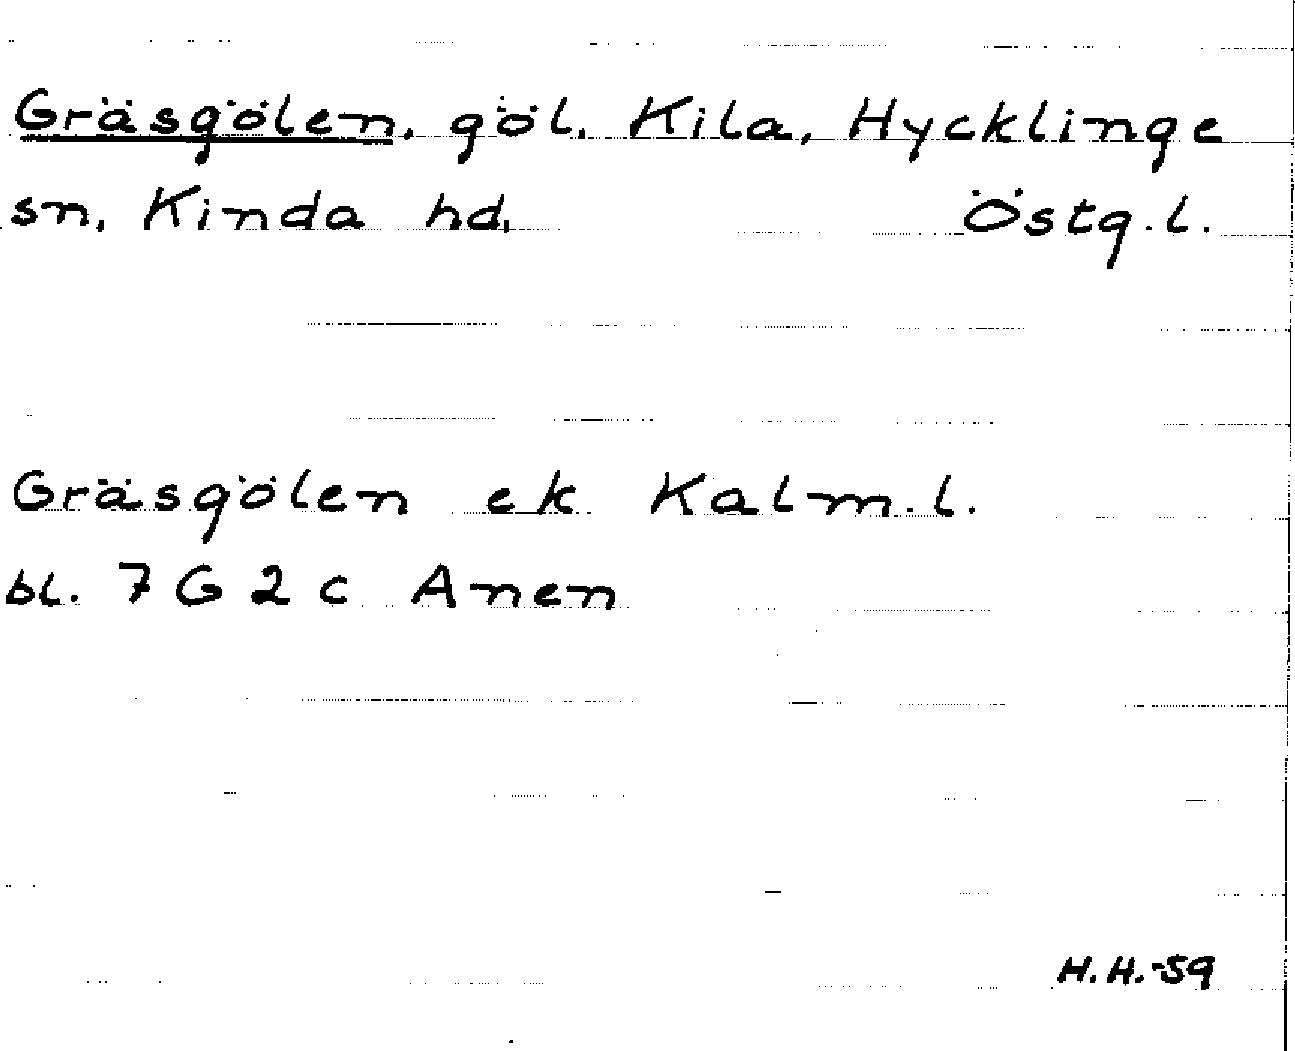 Gräsgölen, göl, Kila, Hycklinge
sn, Kinda hd, Östg.l.
Gräsgölen ek Kalm.l.
bl. 7 G 2 c Anen
H.H.-59